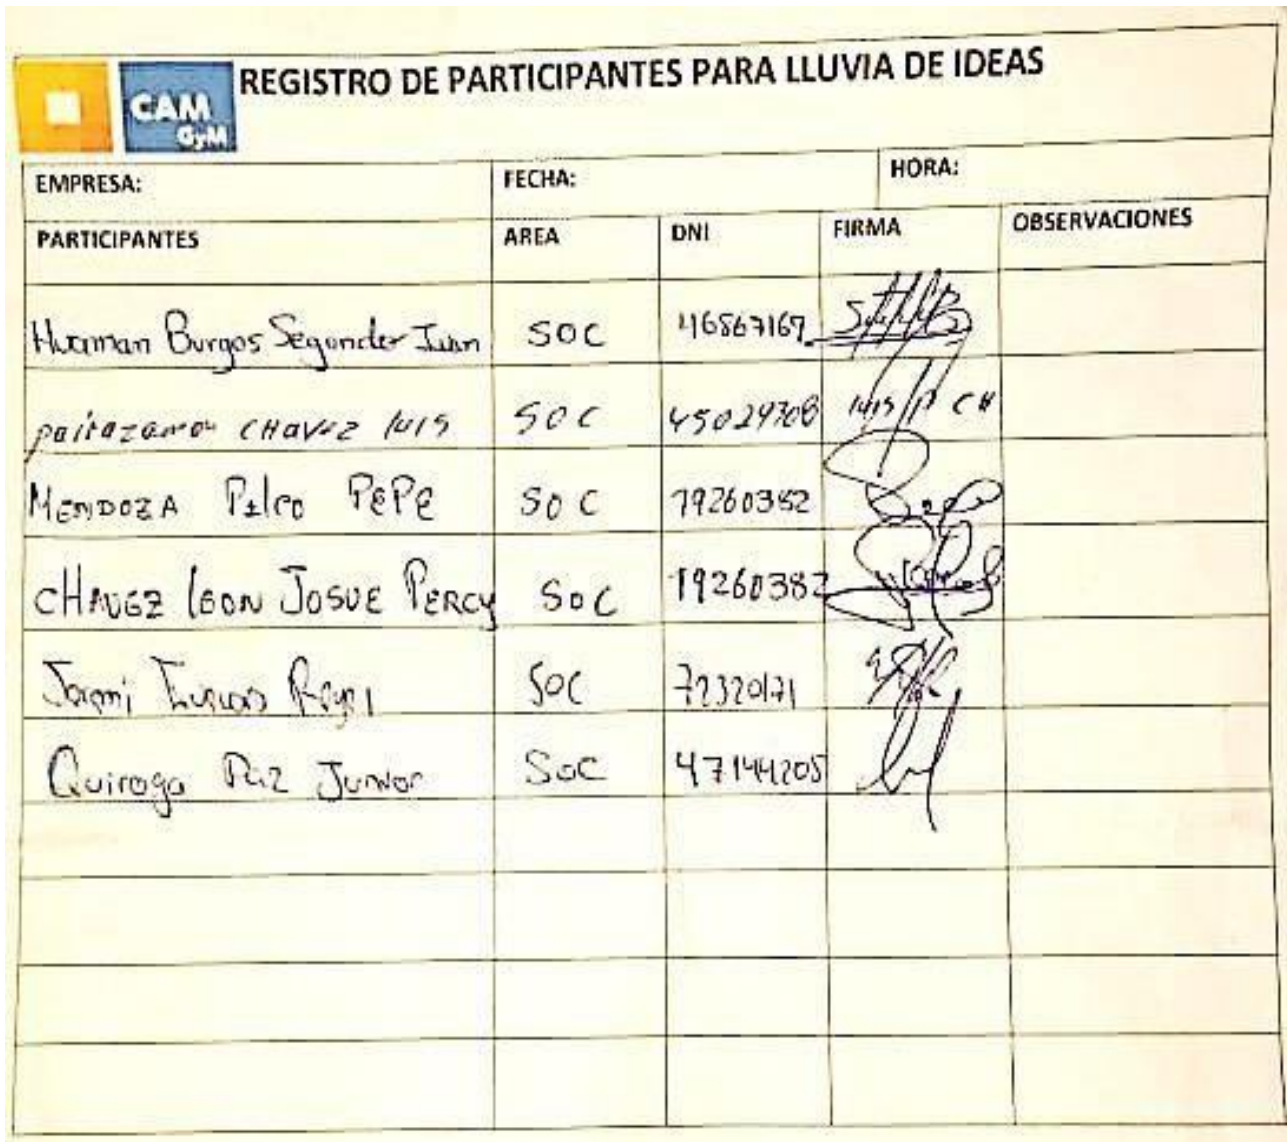 REGISTRO DE PARTICIPANTES PARA LLUVIA DE IDEAS
CAM
GyM
EMPRESA: FECHA: HORA:
PARTICIPANTES AREA DNI FIRMA OBSERVACIONES
Huaman Burgos Segundo Juan SOC 46867167
CHavez luis SOC luis P CH
MENDOZA PIlco PEPE SOC 19260382
CHAVEZ leON JOSUE PERCY SOC 19260382
SOC 72320171
Quiroga Paz Junior SOC 47144205